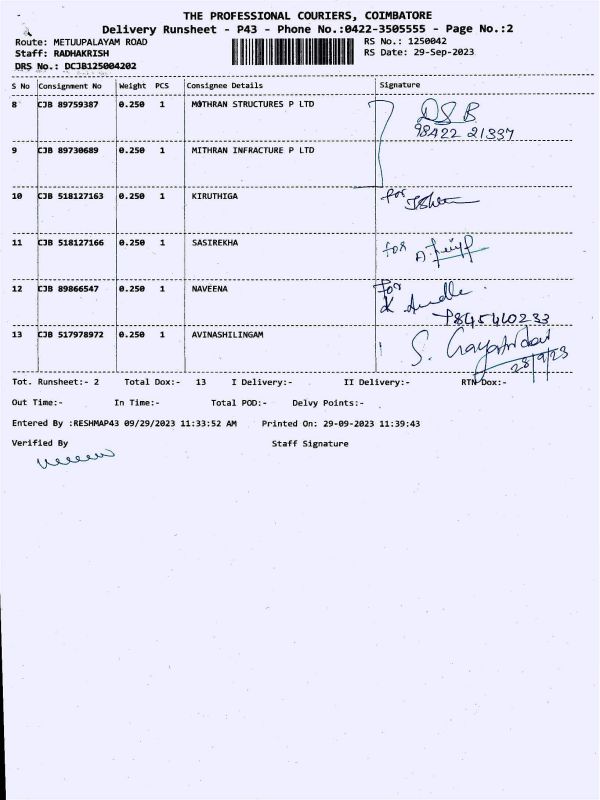 THE PROFESSIONAL COURIERS, COIMBATORE
Delivery Runsheet - P43 - Phone No.:0422-3505555 - Page No.:2
Route: METUUPALAYAM ROAD RS No.: 1250042
Staff: RADHAKRISH RS Date: 29-Sep-2023
DRS No.: DCJB125004202
S No Consignment No Weight PCS Consignee Details Signature
8 CJB 89759387 0.250 1 MOTHRAN STRUCTURES P LTD DSB
98422 21337
9 CJB 89730689 0.250 1 MITHRAN INFRACTURE P LTD
10 CJB 518127163 0.250 1 KIRUTHIGA for
11 CJB 518127166 0.250 1 SASIREKHA for
12 CJB 89866547 0.250 1 NAVEENA for
K
13 CJB 517978972 0.250 1 AVINASHILINGAM S.
28/9/23
Tot. Runsheet:- 2 Total Dox:- 13 I Delivery:- II Delivery:- RTN Dox:-
Out Time:- In Time:- Total POD:- Delvy Points:-
Entered By :RESHMAP43 09/29/2023 11:33:52 AM Printed On: 29-09-2023 11:39:43
Verified By Staff Signature